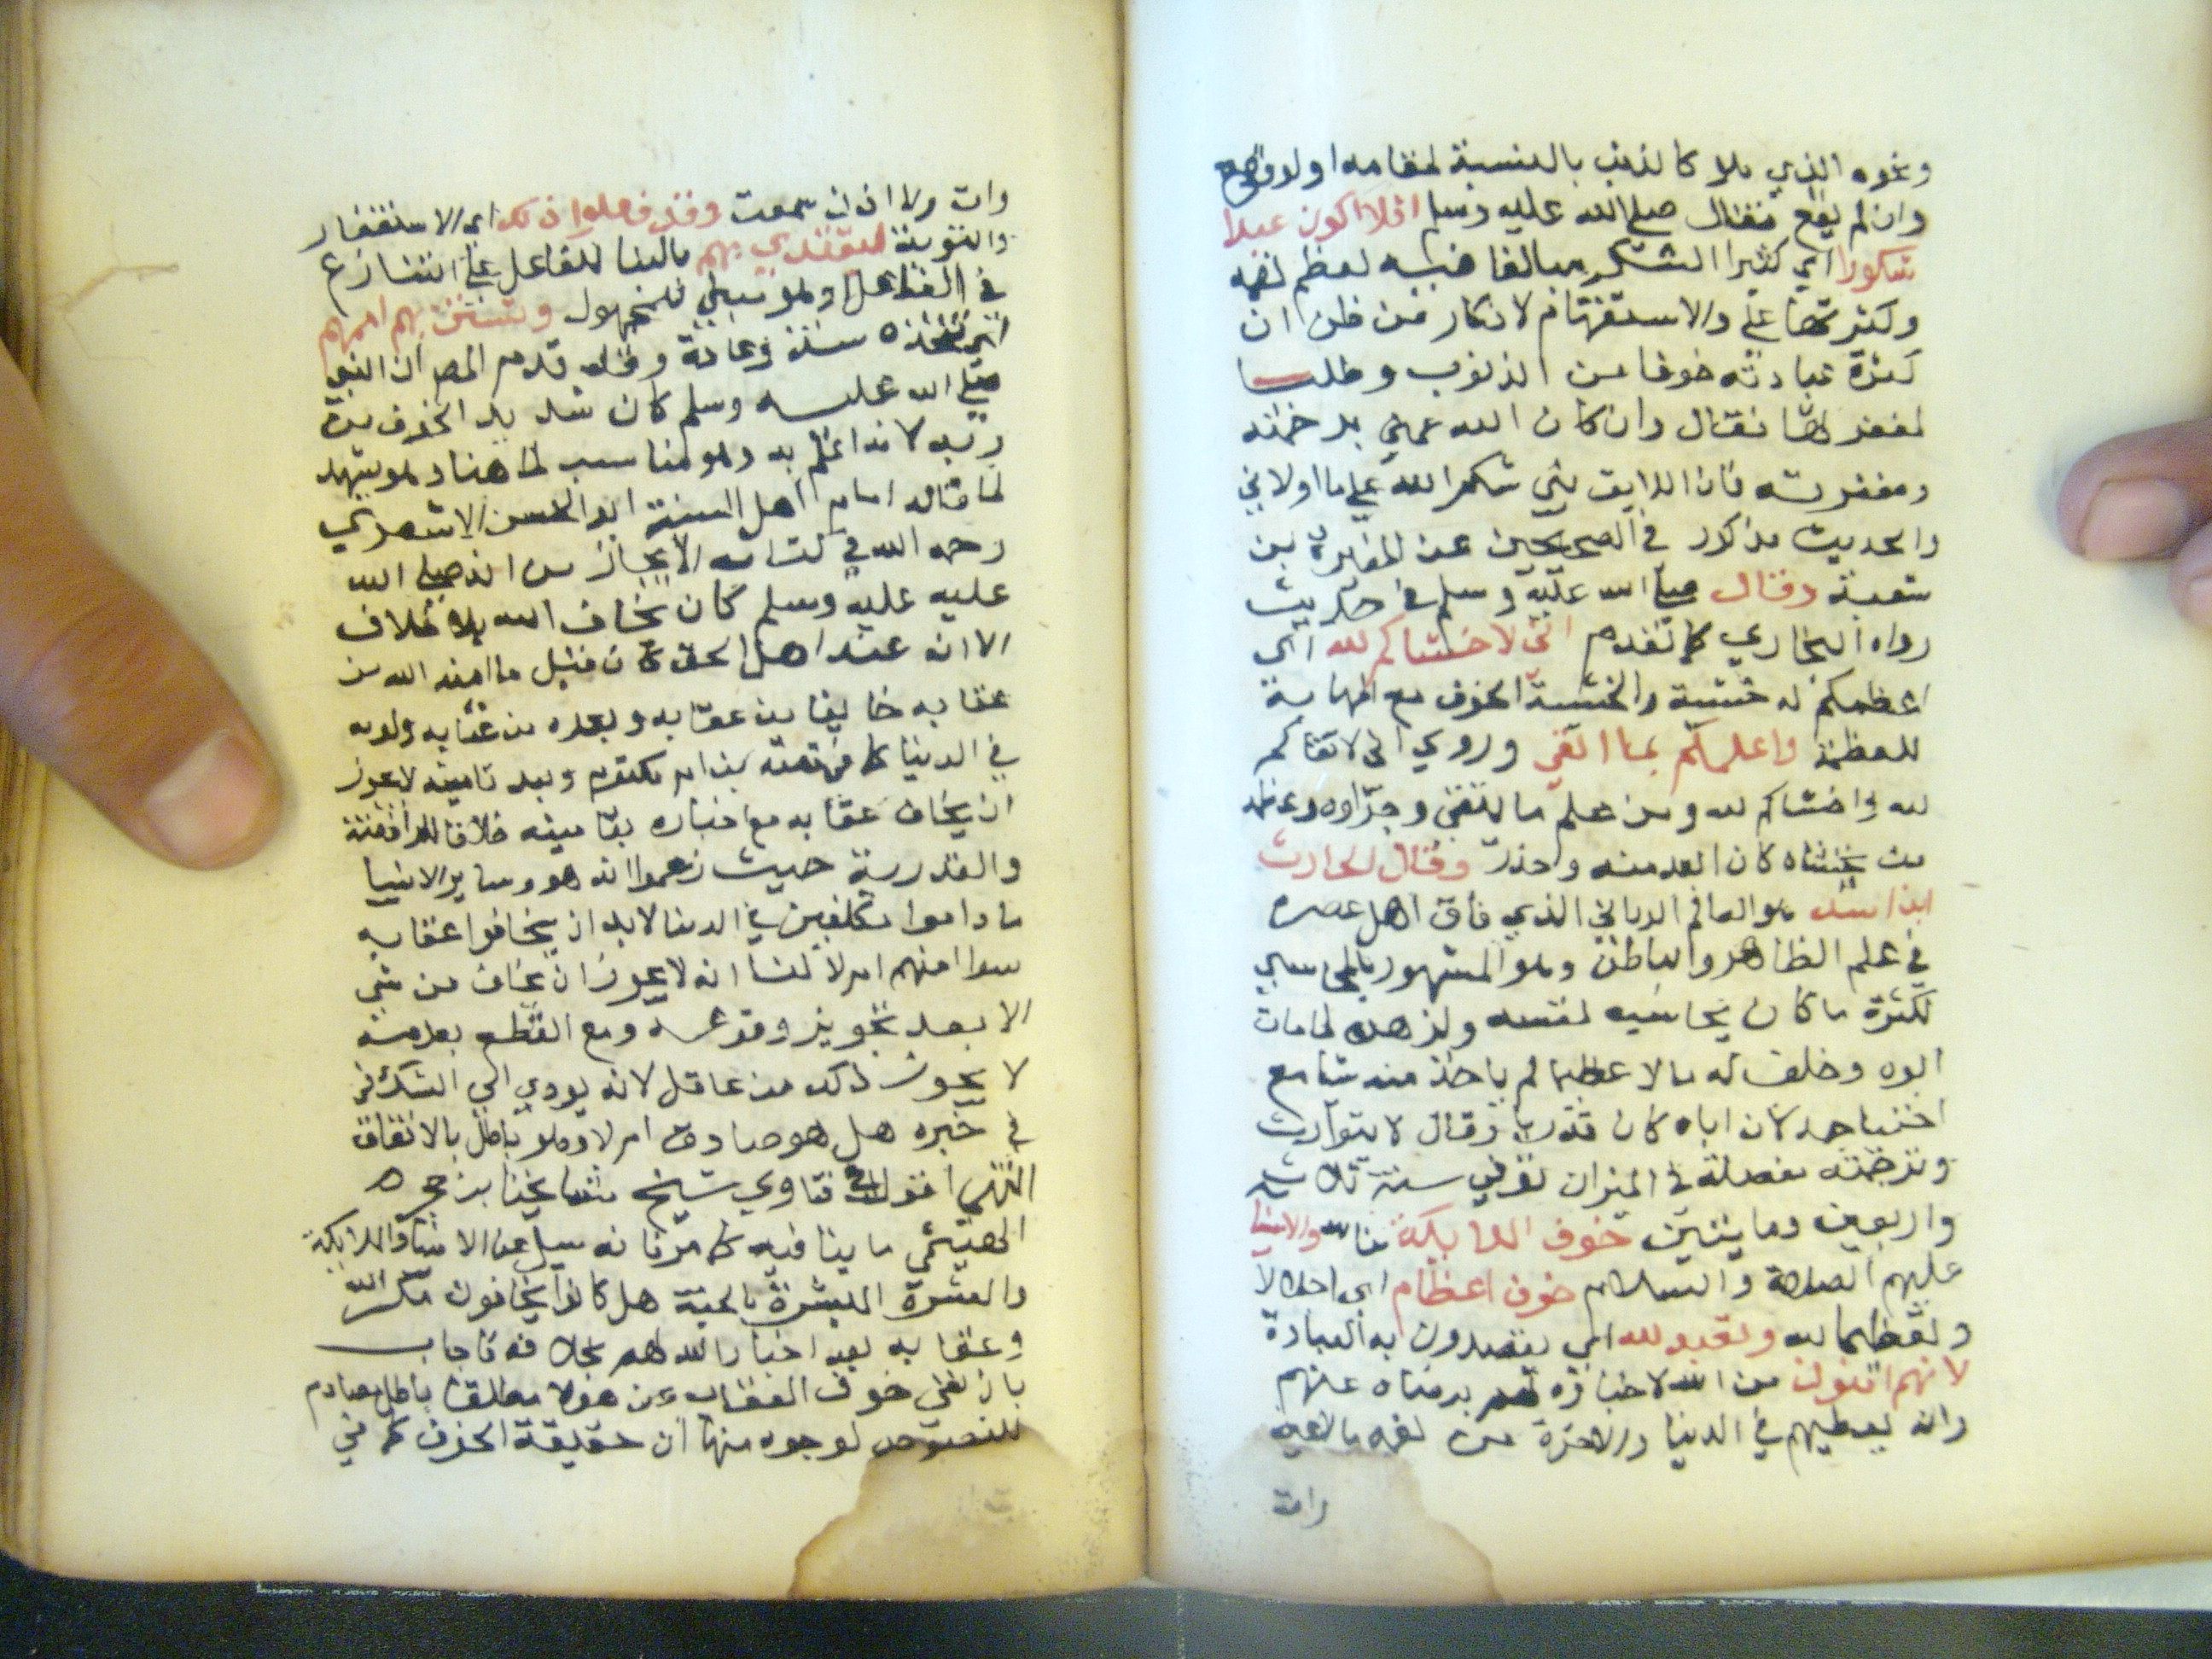 ونحوه الذي هو كالذنب بالنسبة لمقامه اولو وقع
وان لم يقع فقال صلى الله عليه وسلم افلا اكون عبدا
شكورا اي كثير الشكر مبالغا فيه لعظم نعمه
وكثرتها على والاستفهام لانكار من ظن ان
كثرة عبادته خوفا من الذنوب وطلبا
لمغفرتها فقال وان كان الله عمني برحمته
ومغفرته فان اللايق بي شكر الله على ما اولاني
والحديث مذكور في الصحيحين عن المغيرة بن
شعبة وقال صلى الله عليه وسلم في حديث
رواه البخاري كما تقدم اني لاخشاكم لله اي
اعظمكم له خشية والخشية الخوف مع المهابة
للعظمة واعلمكم بما اتقي وروي اني لاتقاكم
لله واخشاكم لله ومن علم ما يتقي وجزاوه وعظمة
من يخشاه كان ابعد منه واحذر وقال الحارث
ابن اسد هو العالم الرباني الذي فاق اهل عصره
في علم الظاهر والباطن وهو المشهور بالمحاسبي
لكثرة ما كان يحاسب نفسه ولزهده لما مات
ابوه وخلف له مالا عظيما لم ياخذ منه شيا مع
احتياجه لان اباه كان قدريا وقال لا يتوارث
وترجمته مفصلة في الميزان توفي سنة ثلاث
واربعين ومايتين خوف الملايكة والانبيا
عليهم الصلاة والسلام خوف اعظام اي اجلالا
وتعظيما لله وتعبد لله اي يقصدون به العبادة
لانهم امنون من الله لاخباره لهم برضاه عنهم
وانه يعطيهم في الدنيا والاخرة من نعمه ما لاعين
رات
رات ولا اذن سمعت وقد فعلوا ذلك اي الاستغفار
والتوبة ليقتدي بهم بالبنا للفاعل على التنازع
في الفاعل او هو مبني للمجهول وتستن بهم اممهم
اي تتخذه سنة وعادة وقد قدم المص ان النبي
صلى الله عليه وسلم كان شديد الخوف من
ربه لانه اعلم به وهو مناسب لما هنا وهو يشهد
لما قاله امام اهل السنة ابو الحسن الاشعري
رحمه الله في كتابه الايجاز من انه صلى الله
عليه عليه وسلم كان يخاف الله بلا خلاف
الا انه عند اهل الحق كان قبل ما امنه الله من
عقابه خايفا من عقابه وبعده من عتابه ولومه
في الدنيا كما في قصة ابن ام مكتوم وبعد تامينه لا يجوز
ان يخاف عقابه مع اخباره بتامينه خلافا للرافضة
والقدرية حيث زعموا انه هو وساير الانبيا
ما داموا مكلفين في الدنيا لابد ان يخافوا عقابه
سوا امنهم ام لا لنا انه لا يجوز ان يخاف من شي
الا بعد تجويز وقوعه ومع القطع بعدمه
لا يجوز ذلك من عاقل لانه يودي الى الشك في
في خبره هل هو صادق ام لا وهو باطل بالاتفاق
انتهى اقول في فتاوي شيخ مشايخنا بن حجر
الهيتمي ما ينافيه كما مر فانه سيل عن الانبيا والملايكة
والعشرة المبشرة بالجنة هل كانوا يخافون مكر الله
وعقابه بعد اخبار الله لهم بخلافه فاجاب
بان نفي خوف العقاب عن هولا مطلقا باطل مصادم
للنصوص لوجوه منها ان حقيقة الخوف كما في